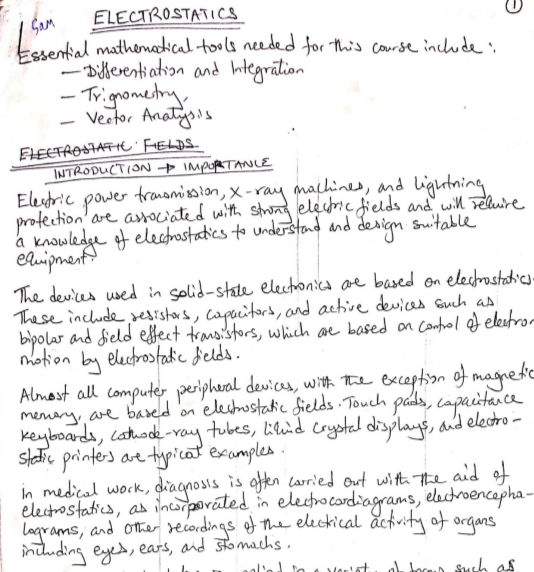 ①
Sam
ELECTROSTATICS
Essential mathematical tools needed for this course include :
— Differentiation and Integration
— Trignometry,
— Vector Analysis
ELECTROSTATIC FIELDS
INTRODUCTION → IMPORTANCE
Electric power transmission, X-ray machines, and lightning
protection are associated with strong electric fields and will require
a knowledge of electrostatics to understand and design suitable
equipment.
The devices used in solid-state electronics are based on electrostatics.
These include resistors, capacitors, and active devices such as
bipolar and field effect transistors, which are based on control of electron
motion by electrostatic fields.
Almost all computer peripheral devices, with the exception of magnetic
memory, are based on electrostatic fields. Touch pads, capacitance
keyboards, cathode-ray tubes, liquid crystal displays, and electro-
static printers are typical examples.
In medical work, diagnosis is often carried out with the aid of
electrostatics, as incorporated in electrocardiagrams, electroencepha-
lograms, and other recordings of the electrical activity of organs
including eyes, ears, and stomachs.
such as